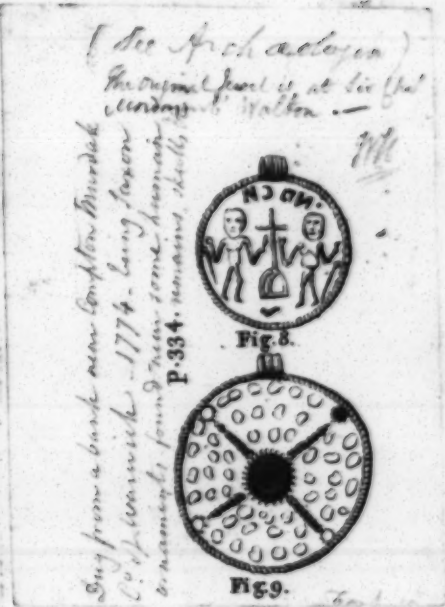 ( See Archæologia )
The original Jewel is at Sir Chas
Mordaunt's Walton. —
Dug from a bank near Compton Murdak
Co. of Warwick - 1774 - being Saxon
ornaments found near some human
remains, skulls
P. 334.
Fig. 8.
Fig. 9.